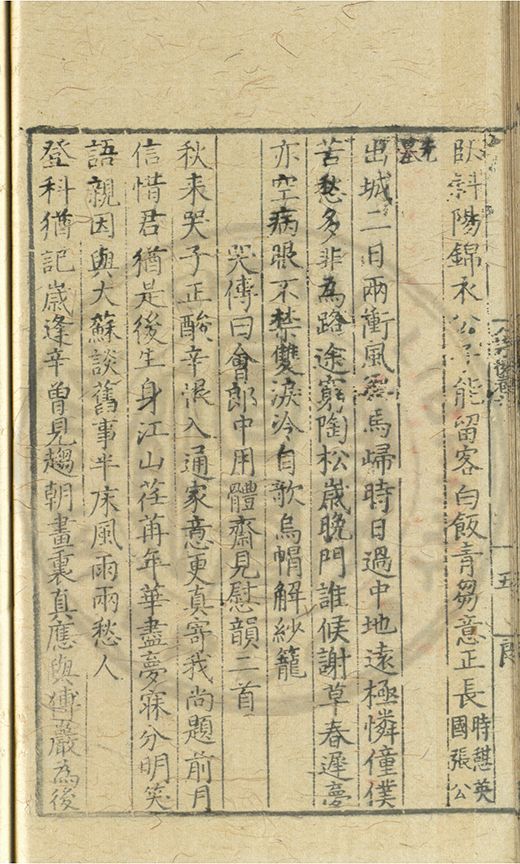 臥斜陽錦衣公子能留客白飯青芻意正長時憩英國張公
先墓
出城二日兩衝風羸馬歸時日過中地遠極憐僮僕
苦愁多非為路途窮陶松歲晚門誰候謝草春遲夢
亦空病眼不禁雙淚泠自歌烏帽解紗籠
哭傅曰會郎中用體齋見慰韻二首
秋來哭子正酸辛淚入通家意更真寄我尚題前月
信惜君猶是後生身江山荏苒年華盡夢寐分明笑
語親因與大蘇談舊事半床風雨兩愁人
登科猶記歲逢辛曾見趨朝畫裏真應與傅巖為後
五